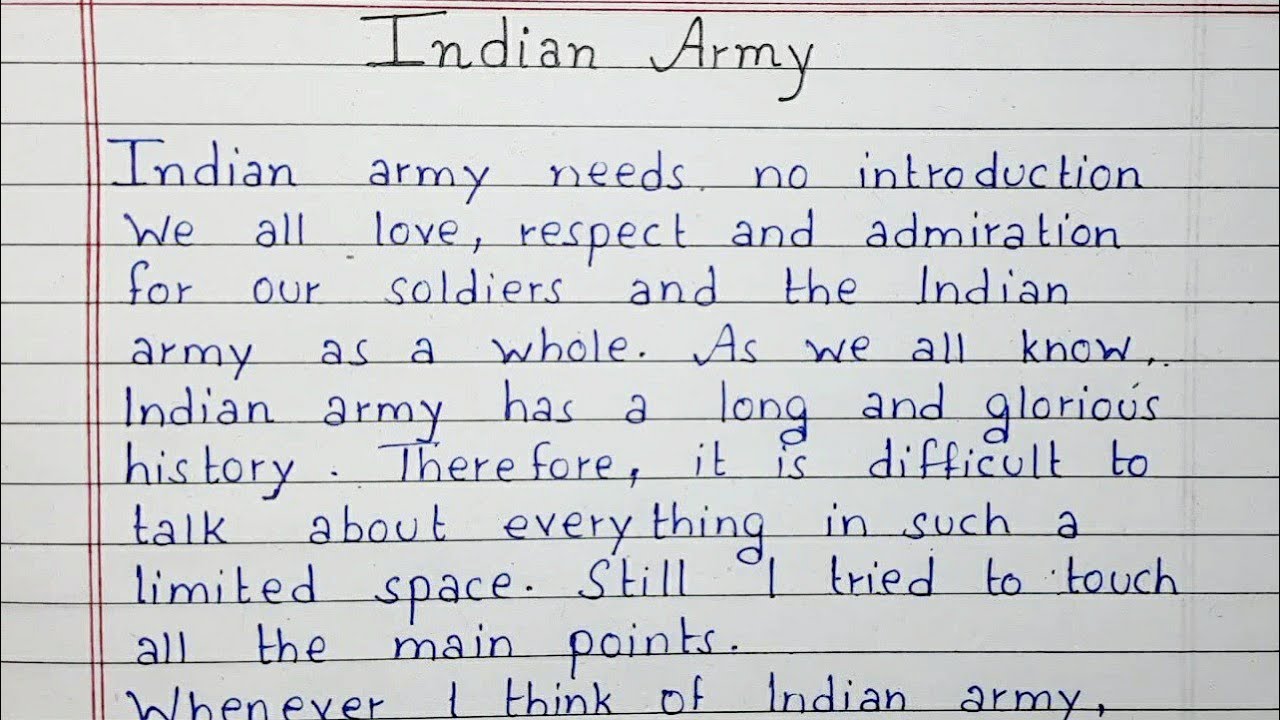 Indian Army
Indian army needs no introduction
We all love, respect and admiration
for our soldiers and the Indian
army as a whole. As we all know,
Indian army has a long and glorious
history. Therefore, it is difficult to
talk about everything in such a
limited space. Still I tried to touch
all the main points.
Whenever I think of Indian army,